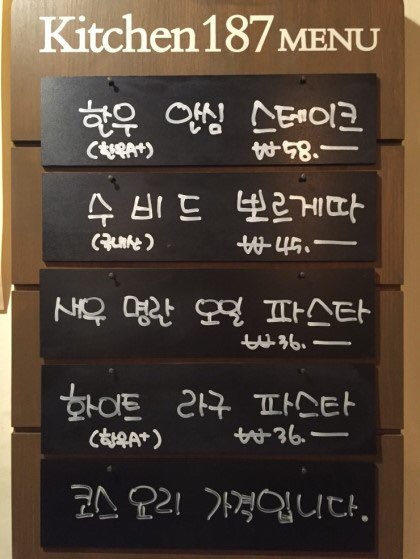 Kitchen187 MENU
한우 안심 스테이크
(한우A+) ₩58.—
수비드 뽀르게따
(국내산) ₩45.—
새우 명란 오일 파스타
₩36.—
화이트 라구 파스타
(한우A+) ₩36.—
코스 요리 가격입니다.